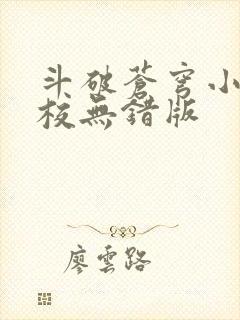 斗破蒼穹小
校無錯版
廖雲路